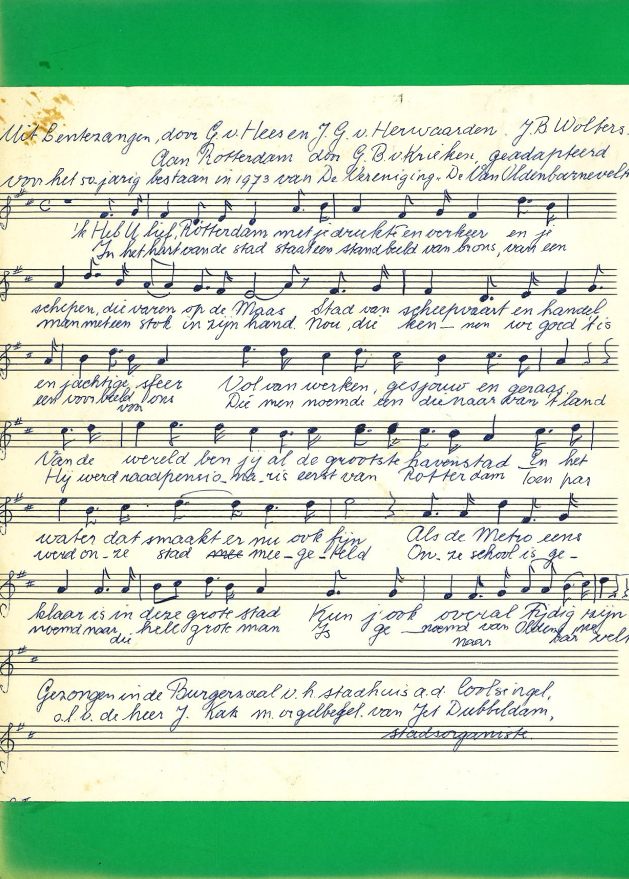 Uit Lentezangen, door G. v. Hees en J. G. v. Herwaarden. J. B. Wolters.
Aan Rotterdam door G. B. v. Krieken, geadapteerd
voor het 50-jarig bestaan in 1973 van De Vereniging "De Van Oldenbarnevelt
'k Heb U lief, Rotterdam met je drukte en verkeer en je
In het hart van de stad staat een standbeeld van brons, van een
schepen, die varen op de Maas Stad van scheepvaart en handel
man met een stok in zijn hand. Nou, die ken_ nen we goed 't is
en jachtige sfeer Vol van werken, gesjouw en geraas
een voorbeeld ons Die men noemde een die naar van 't land
von
Van de wereld ben jij al de grootste havenstad En het
Hij werd raadpensio_na_ris eerst van Rotterdam Toen pas
water dat smaakt er nu ook fijn Als de Metro eens
werd on_ze stad mee_ge_teld On_ze school is ge_
klaar is in deze grote stad Kun j' ook overal tijdig zijn
noemd naar hele grote man Is ge_noemd van Olden bar velt
die naar
Gezongen in de Burgerzaal v. h. stadhuis a.d. Coolsingel,
o.l.v. de heer J. Kak m. orgelbegel. van Jet Dubbeldam,
stadsorganiste.